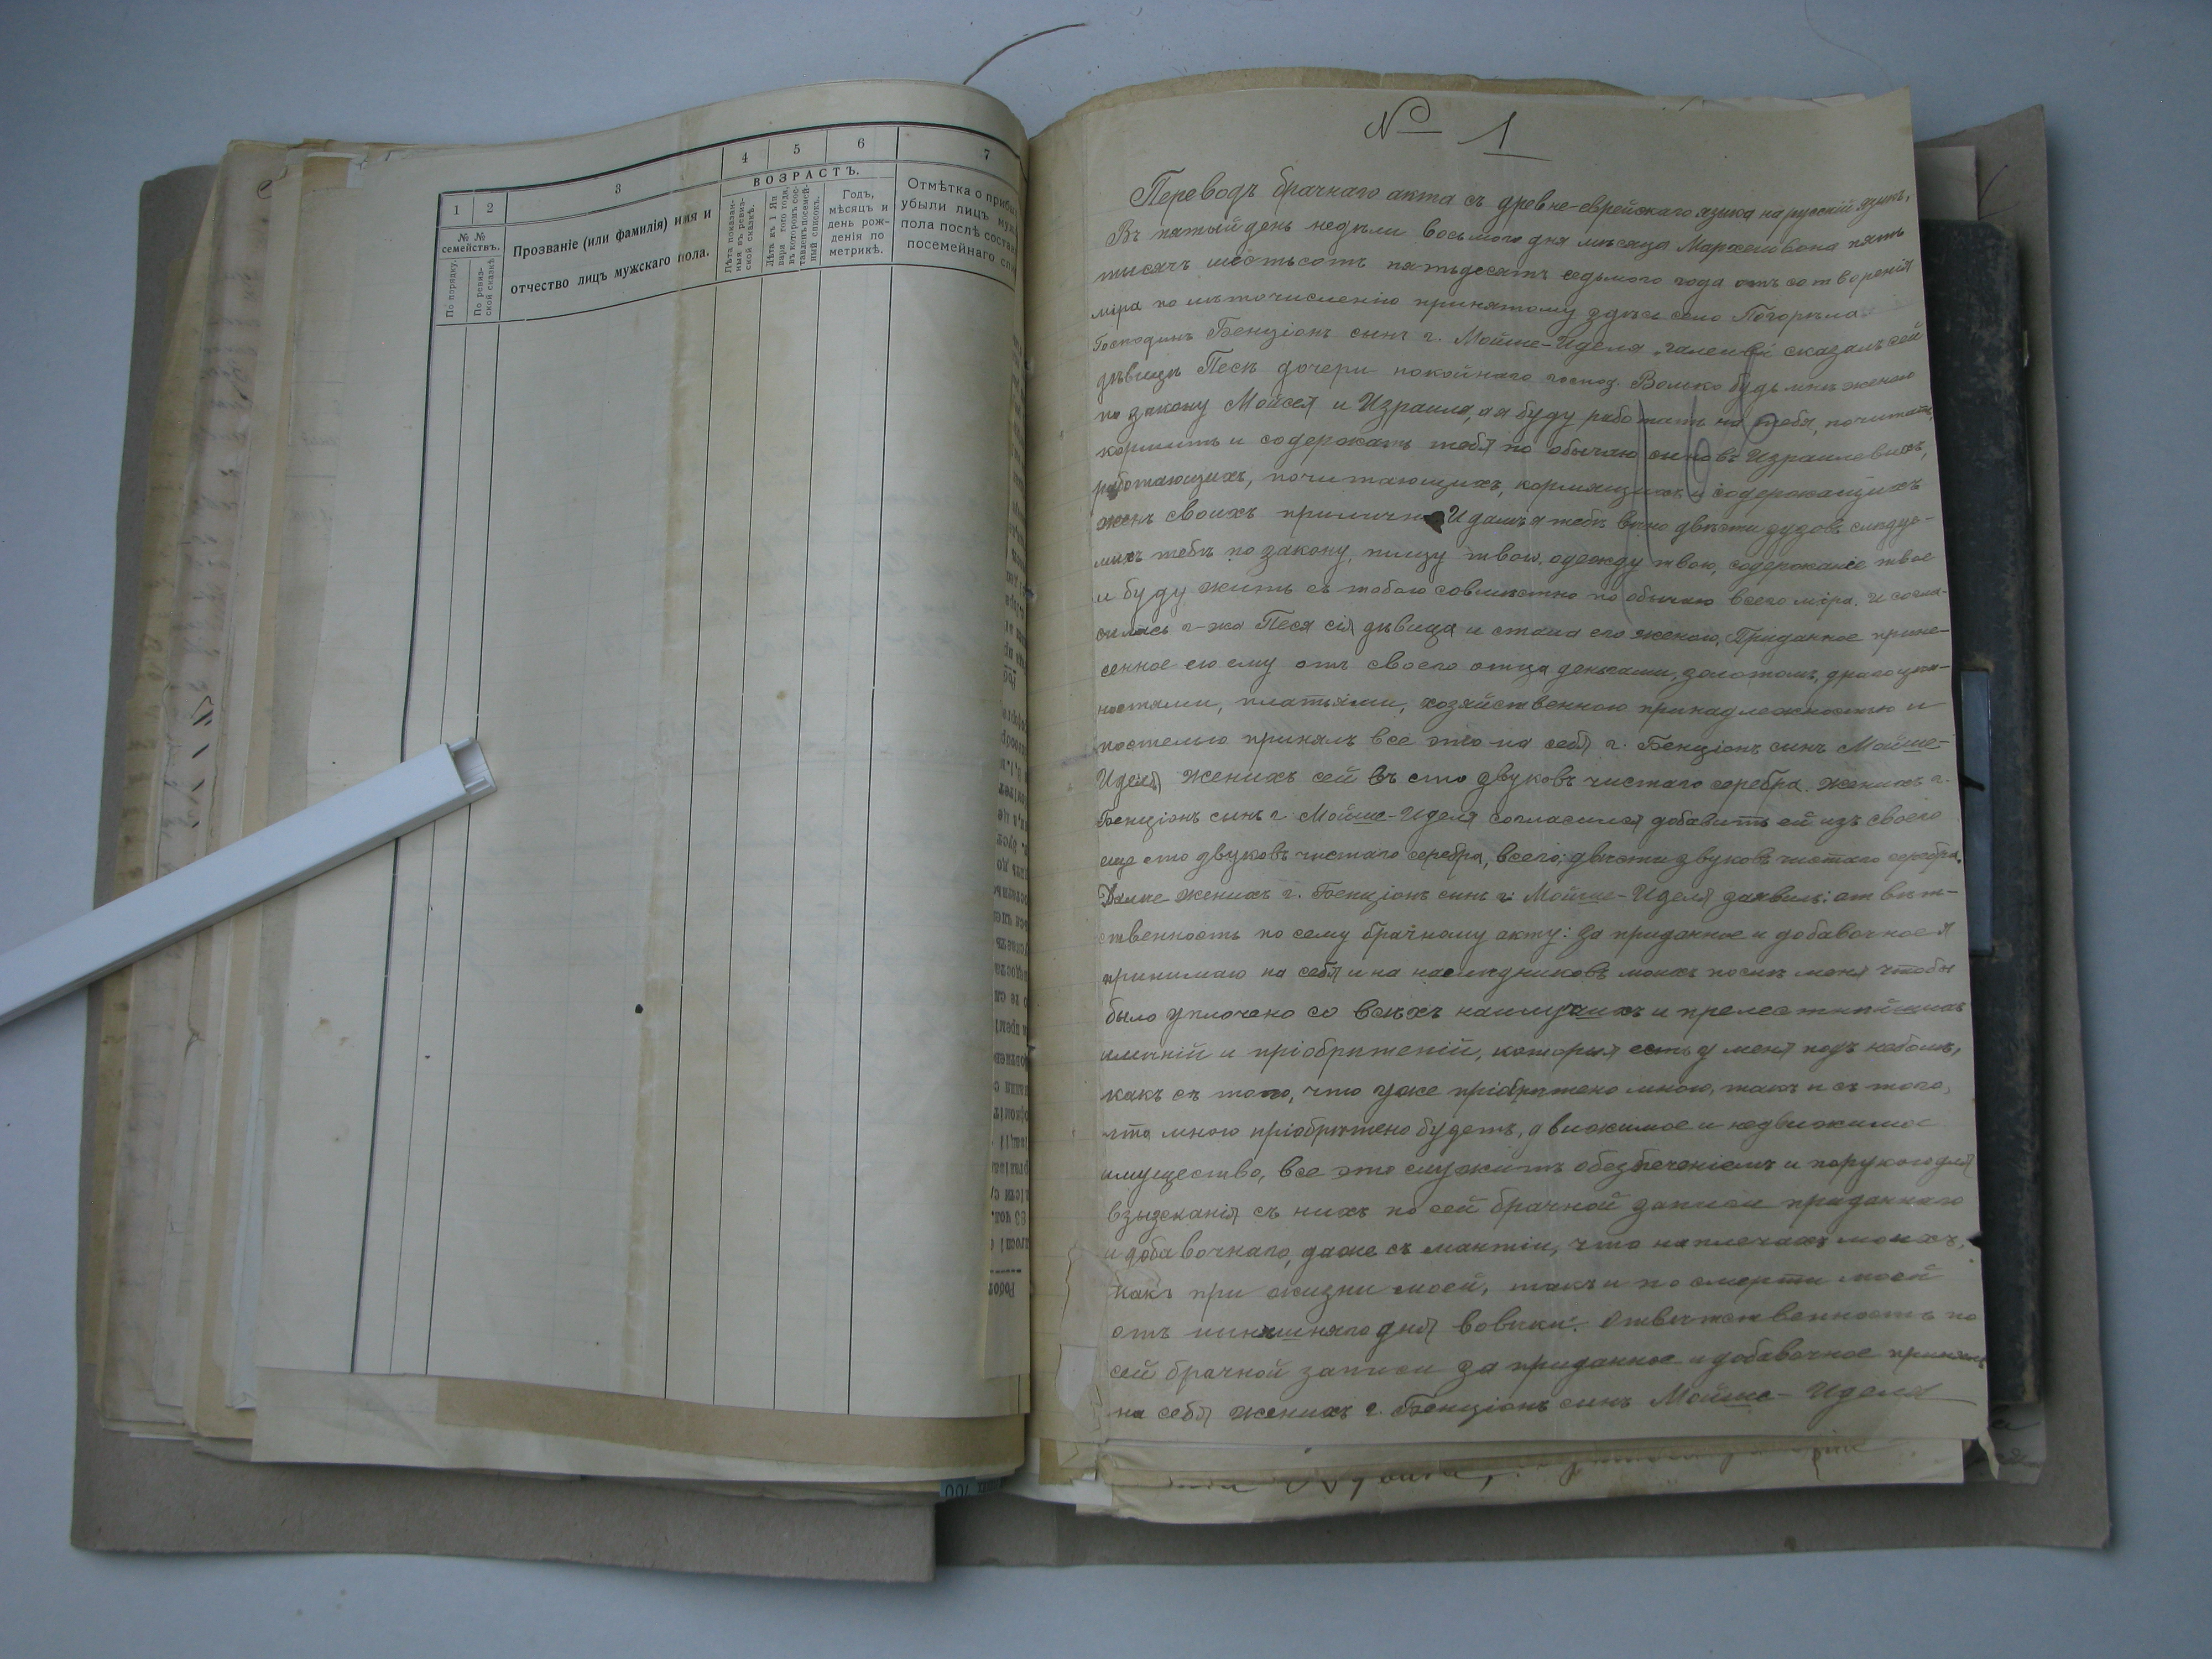 1
2
3
4
5
6
7
№ №
семействъ.
По порядку.
По ревиз-
ской сказкѣ.
Прозваніе (или фамилія) имя и
отчество лицъ мужскаго пола.
ВОЗРАСТЪ.
Лѣта показан-
ныя въ ревиз-
ской сказкѣ.
Лѣта къ 1 Ян
варя того года,
въ которомъ сос-
тавленъ посемей-
ный списокъ.
Годъ,
мѣсяцъ и
день рож-
денія по
метрикѣ.
Отмѣтка о
убыли лицъ
пола послѣ
посемейнаго
№ 1
Переводъ брачнаго акта съ древне-еврейскаго языка на русскій языкъ.
Въ пятый день недѣли восьмого дня мѣсяца Мархешвона пять
тысячъ шестьсотъ пятьдесятъ седьмого года отъ сотворенія
міра по лѣточисленію принятому здѣсь село Погорѣла
Господинъ Бенціонъ сынъ г. Мойше-Иделя сказалъ сей
дѣвицѣ Песѣ дочери покойнаго господ. Волько будь мнѣ женою
по закону Мойсея и Израиля, а я буду работать на тебя, почитать,
кормить и содержать тебя по обычаю сыновъ Израилевыхъ,
работающихъ, почитающихъ, кормящихъ и содержащихъ
женъ своихъ прилично И далъ я тебѣ вѣно двѣсти зузовъ слѣдуе-
мыхъ тебѣ по закону, пищу твою, одежду твою, содержаніе твое
и буду жить съ тобою совмѣстно по обычаю всего міра. И согла-
силась г-жа Песя сія дѣвица и стала его женою. Приданное прине-
сенное ею ему отъ своего отца деньгами, золотомъ, драгоцѣн-
ностями, платьями, хозяйственною принадлежностью и
постелью принялъ все это на себя г. Бенціонъ сынъ Мойше-
Иделя женихъ сей въ сто двуковъ чистаго серебра. Женихъ г.
Бенціонъ сынъ г. Мойше-Иделя согласился добавить ей изъ своего
еще сто двуковъ чистаго серебра, всего: двѣсти двуковъ чистаго серебра.
Далѣе женихъ г. Бенціонъ сынъ г. Мойше-Иделя заявилъ: отвѣт-
ственность по сему брачному акту: за приданное и добавочное я
принимаю на себя и на наслѣдниковъ моихъ послѣ меня чтобы
было уплочено со всѣхъ наилучшихъ и прелестнѣйшихъ
имѣній и пріобрѣтеній, которыя есть у меня подъ небомъ,
какъ съ того, что уже пріобрѣтено мною, такъ и съ того,
что мною пріобрѣтено будетъ, движимое и недвижимое
имущество, все это служитъ обезпеченіемъ и порукою для
взысканія съ нихъ по сей брачной записи приданнаго
и добавочнаго, даже съ мантіи, что на плечахъ моихъ,
какъ при жизни моей, такъ и по смерти моей
отъ нынѣшняго дня вовѣки. Отвѣтственность по
сей брачной записи за приданное и добавочное принялъ
на себя женихъ г. Бенціонъ сынъ Мойше-Иделя